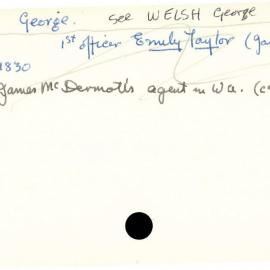 George. see WELSH George
1st officer Emily Taylor (Ja
1830
James McDermott's agent in WA. (c